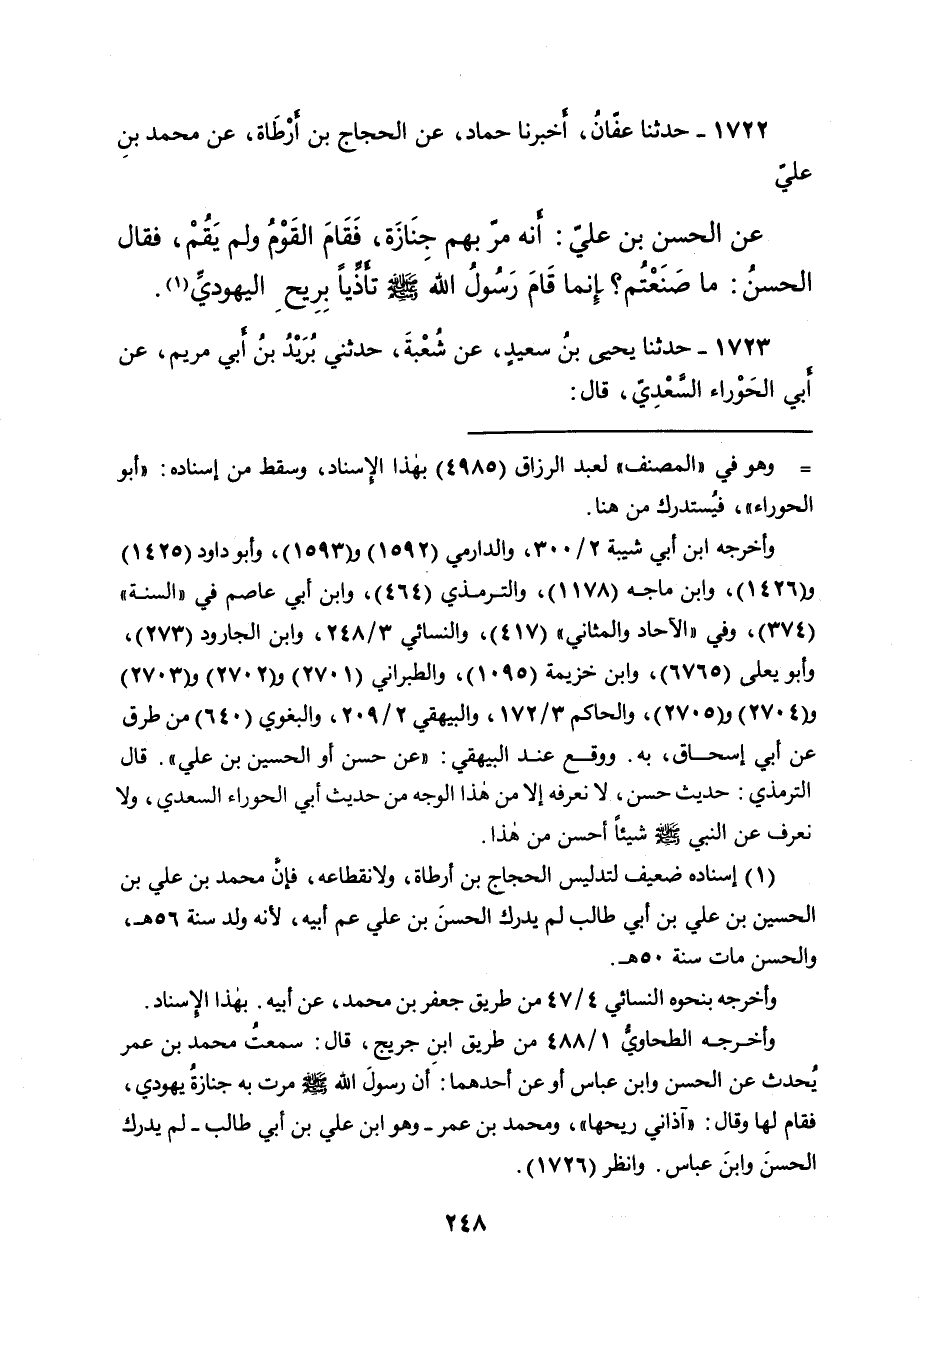 ١٧٢٢ - حدثنا عفّانُ، أَخبرنا حماد، عن الحجاج بن أَرْطَاة، عن محمد بنِ
عليّ
عن الحسن بن عليّ: أَنه مرّ بهم جِنَازَة، فَقَامَ القَوْمُ ولم يَقُمْ، فقال
الحسنُ: ما صَنَعْتُم؟ إِنما قَامَ رَسُولُ الله ﷺ تأَذِّياً بِرِيحِ اليهوديِّ(١).
١٧٢٣ - حدثنا يحيى بنُ سعيدٍ، عن شُعْبةَ، حدثني بُرَيْدُ بنُ أَبي مريم، عن
أَبي الحَوْراء السَّعْدِيّ، قال:
= وهو في «المصنف» لعبد الرزاق (٤٩٨٥) بهٰذا الإِسناد، وسقط من إسناده: «أبو
الحوراء»، فيُستدرك من هنا.
وأخرجه ابن أبي شيبة ٣٠٠/٢، والدارمي (١٥٩٢) و(١٥٩٣)، وأبو داود (١٤٢٥)
و(١٤٢٦)، وابن ماجه (١١٧٨)، والترمذي (٤٦٤)، وابن أبي عاصم في «السنة»
(٣٧٤)، وفي «الآحاد والمثاني» (٤١٧)، والنسائي ٢٤٨/٣، وابن الجارود (٢٧٣)،
وأبو يعلى (٦٧٦٥)، وابن خزيمة (١٠٩٥)، والطبراني (٢٧٠١) و(٢٧٠٢) و(٢٧٠٣)
و(٢٧٠٤) و(٢٧٠٥)، والحاكم ١٧٢/٣، والبيهقي ٢٠٩/٢، والبغوي (٦٤٠) من طرق
عن أبي إسحاق، به. ووقع عند البيهقي: «عن حسن أو الحسين بن علي». قال
الترمذي: حديث حسن، لا نعرفه إلا من هٰذا الوجه من حديث أبي الحوراء السعدي، ولا
نعرف عن النبي ﷺ شيئاً أحسن من هٰذا.
(١) إسناده ضعيف لتدليس الحجاج بن أرطاة، ولانقطاعه، فإنَّ محمد بن علي بن
الحسين بن علي بن أبي طالب لم يدرك الحسنَ بن علي عم أبيه، لأنه ولد سنة ٥٦هـ،
والحسن مات سنة ٥٠هـ.
وأخرجه بنحوه النسائي ٤٧/٤ من طريق جعفر بن محمد، عن أبيه. بهٰذا الإِسناد.
وأخرجه الطحاويُّ ٤٨٨/١ من طريق ابن جريج، قال: سمعتُ محمد بن عمر
يُحدث عن الحسن وابن عباس أو عن أحدهما: أن رسولَ الله ﷺ مرت به جنازةُ يهودي،
فقام لها وقال: «آذاني ريحها»، ومحمد بن عمر - وهو ابن علي بن أبي طالب - لم يدرك
الحسنَ وابنَ عباس. وانظر (١٧٢٦).
٢٤٨